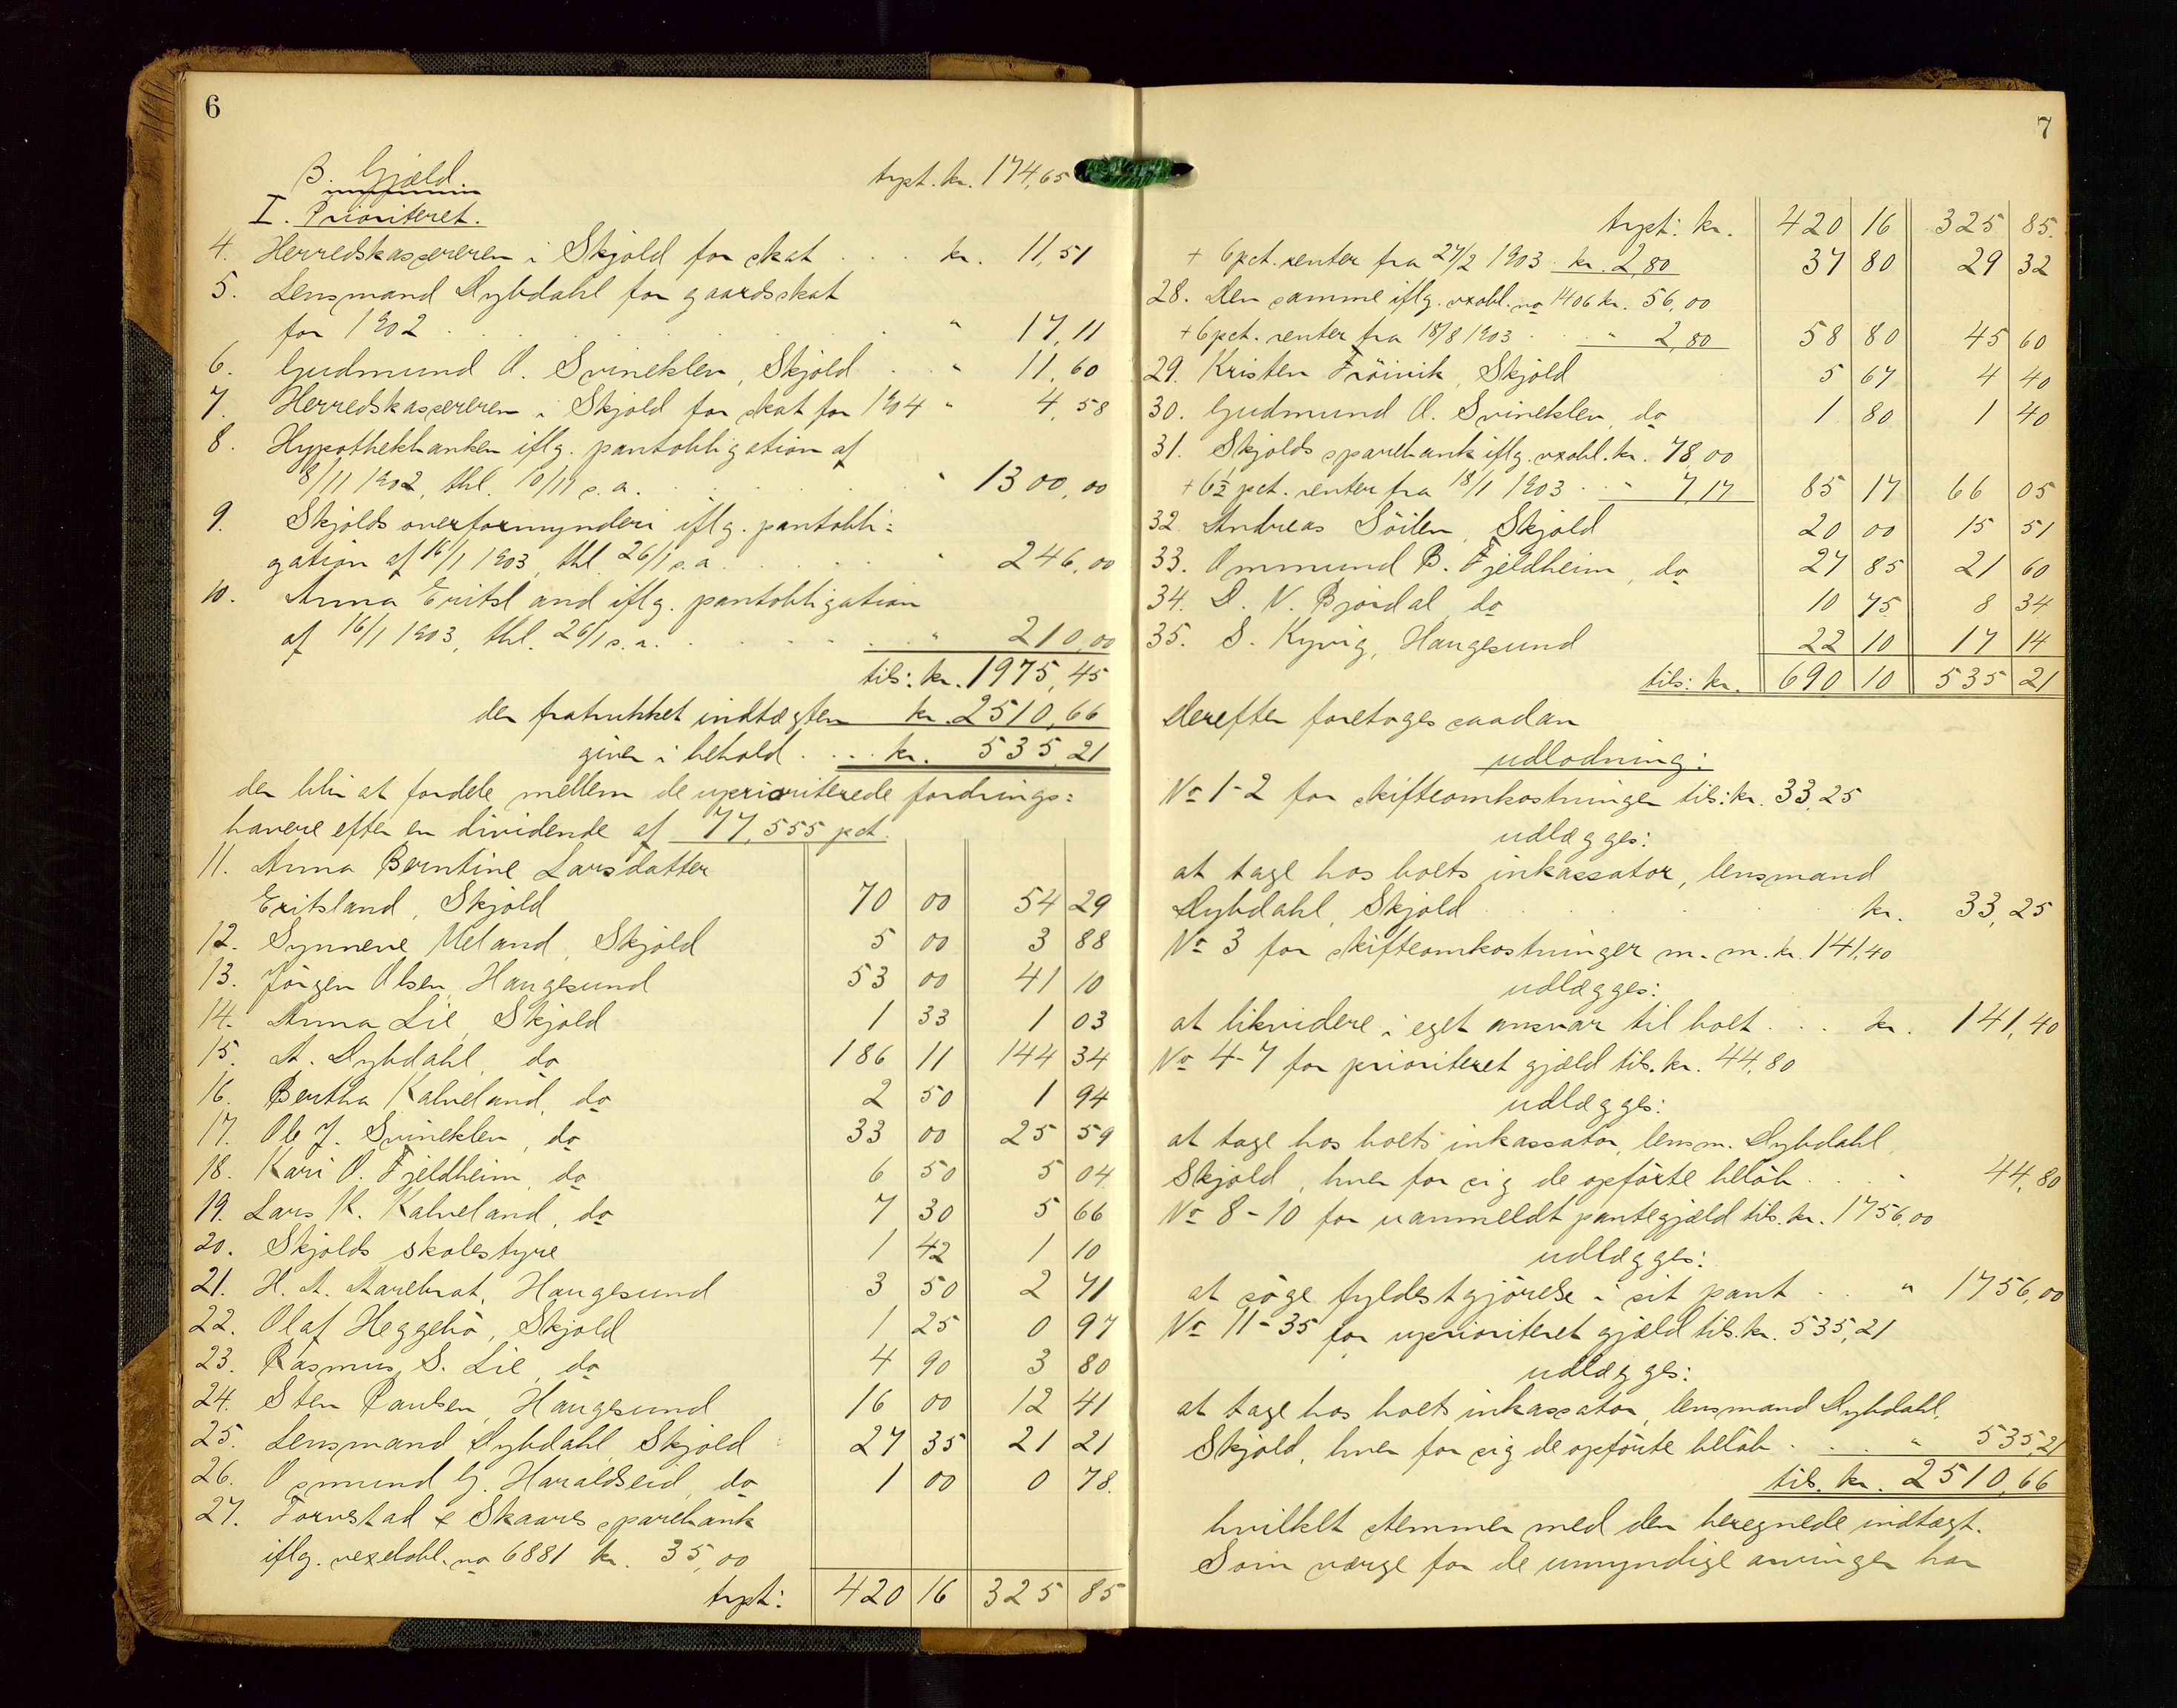 6
B. Gjæld.
trpt. kr. 174,65
I. Prioriteret.
4. Herredskassereren i Skjold for skat . . . kr. 11,51
5. Lensmand Dybdahl for gaardsskat
for 1902 . . . " 17,11
6. Gudmund O. Svineklev, Skjold . . " 11,60
7. Herredskassereren i Skjold for skat for 1904 " 4,58
8. Hypothekbanken iflg. pantobligation af
8/11 1902, thl. 10/11 s.a. . . . " 1300,00
9. Skjolds overformynderi iflg. pantobli=
gation af 16/1 1903, thl. 26/1 s.a. . . . " 246,00
10. Anna Eritsland iflg. pantobligation
af 16/1 1903, thl. 26/1 s.a. . . . " 210,00
tils: kr. 1975,45
der fratrukket indtægten kr. 2510,66
giver i behold . . . kr. 535,21
der blir at fordele mellem de uprioriterede fordrings=
havere efter en dividende af 77,555 pct.
11. Anna Berntine Larsdatter
Eritsland, Skjold 70 00 54 29
12. Synneve Meland, Skjold 5 00 3 88
13. Jörgen Olsen, Haugesund 53 00 41 10
14. Anna Lie, Skjold 1 33 1 03
15. A. Dybdahl, do 186 11 144 34
16. Bertha Kalveland, do 2 50 1 94
17. Ole J. Svineklev, do 33 00 25 59
18. Kari O. Fjeldheim, do 6 50 5 04
19. Lars K. Kalveland, do 7 30 5 66
20. Skjolds skolestyre 1 42 1 10
21. H. A. Aarebrot, Haugesund 3 50 2 71
22. Olaf Heggebö, Skjold 1 25 0 97
23. Rasmus S. Lie, do 4 90 3 80
24. Sten Paulsen, Haugesund 16 00 12 41
25. Lensmand Dybdahl, Skjold 27 35 21 21
26. Osmund G. Haraldseid, do 1 00 0 78
27. Torvestad & Skaares sparebank
iflg. vexelobl. no 6881 kr. 35,00
trpt: 420 16 325 85
7
trpt: kr. 420 16 325 85
+ 6 pct. renter fra 27/2 1903 kr. 2,80 37 80 29 32
28. Den samme iflg. vxobl. no 1406 kr. 56,00
+ 6 pct. renter fra 18/8 1903 . . " 2,80 58 80 45 60
29. Kristen Fröivik, Skjold 5 67 4 40
30. Gudmund O. Svineklev, do 1 80 1 40
31. Skjolds sparebank iflg. vxobl. kr. 78,00
+ 6½ pct. renter fra 18/1 1903 . . " 7,17 85 17 66 05
32. Andreas Söilen, Skjold 20 00 15 51
33. Ommund B. Fjeldheim, do 27 85 21 60
34. D. N. Bjordal, do 10 75 8 34
35. S. Kyvig, Haugesund 22 10 17 14
tils: kr. 690 10 535 21
Derefter foretoges saadan
udlodning:
No 1-2 for skifteomkostninger tils: kr. 33,25
udlægges:
at tage hos boets inkassator, lensmand
Dybdahl, Skjold . . . kr. 33,25
No 3 for skifteomkostninger m. m. kr. 141,40
udlægges:
at likvidere i eget ansvar til boet . . . kr. 141,40
No 4-7 for prioriteret gjæld tils. kr. 44,80
udlægges:
at tage hos boets inkassator, lensm. Dybdahl,
Skjold, hver for sig de opførte beløb . . . " 44,80
No 8-10 for uanmeldt pantegjæld tils. kr. 1756,00
udlægges:
at søge fyldestgjørelse i sit pant . . " 1756,00
No 11-35 for uprioriteret gjæld tils. kr. 535,21
udlægges:
at tage hos boets inkassator, lensmand Dybdahl,
Skjold, hver for sig de opførte beløb . . . " 535,21
tils. kr. 2510,66
hvilket stemmer med den beregnede indtægt.
Som værge for de umyndige arvinger har